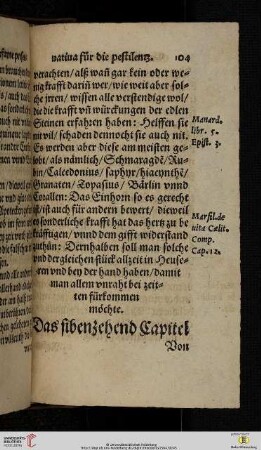 vatiua für die pestilentz. 104
verachten / alß wañ gar kein oder we-
nig krafft dariñ wer / wie weit aber sol-
che jrren / wissen alle verstendige wol /
die die krafft vñ würckungen der edlen
Steinen erfahren haben: Helffen sie
nit vil / schaden dennocht sie auch nit.
Es werden aber diese am meisten ge-
lobt / als nämlich / Schmaragdē / Ru-
bin / Calcedonius / saphyr / hiacynthē
Granaten / Topasius / Bärlin vnnd
Corallen: Das Einhorn so es gerecht
ist / ist auch für andern bewert / dieweil
es sonderliche krafft hat das hertz zu be
kräfftigen / vnnd dem gifft widerstand
zuthůn: Dernhalben soll man solche
vnd dergleichen stück allzeit in Heuse-
ren vnd bey der hand haben / damit
man allem vnraht bei zeit-
ten fürkommen
möchte.
Das sibenzehend Capitel
Von
Manard.
libr. 5.
Epist. 3.
Marsil. de
vita Celit.
Comp.
Cap. 12.